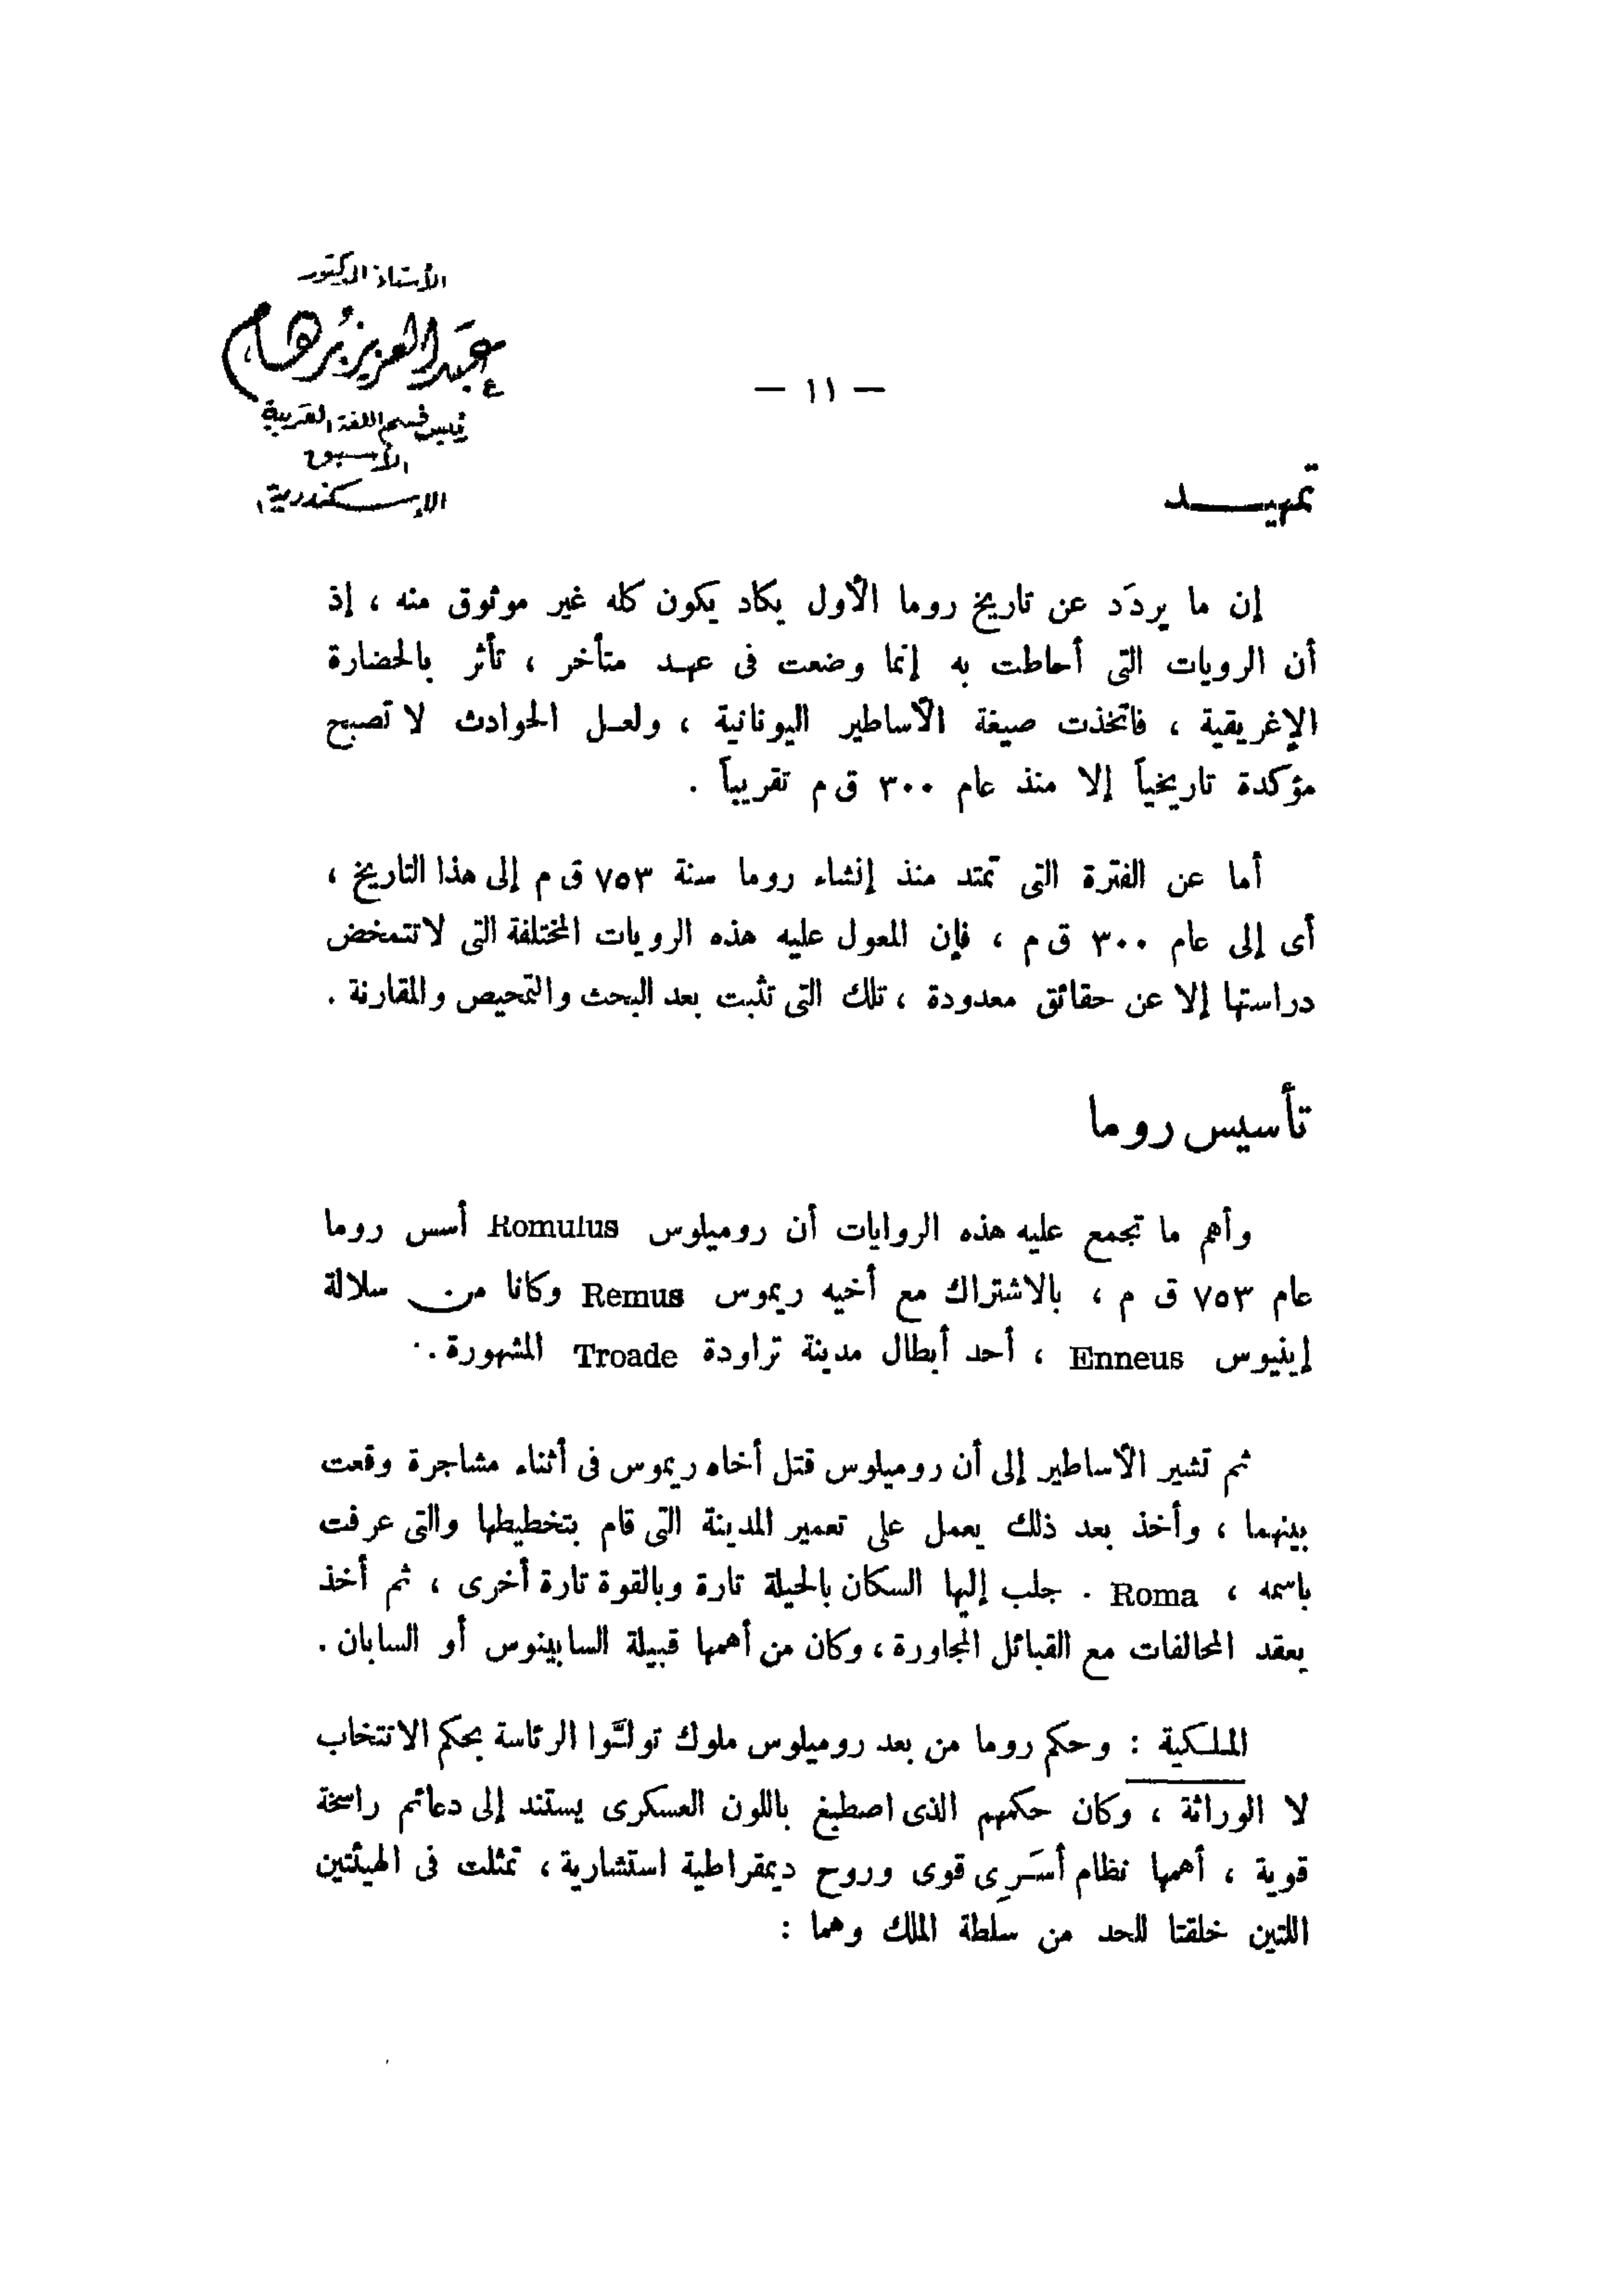 الأستاذ الدكتور
عبد العزيز برهام
رئيس قسم اللغة العربية
الأسبق
الإسكندرية
— ١١ —
تمهيــد
إن ما يردَد عن تاريخ روما الأول يكاد يكون كله غير موثوق منه ، إذ
أن الرويات التى أحاطت به إنما وضعت فى عهـد متأخر ، تأثر بالحضارة
الإغريقية ، فاتخذت صيغة الأساطير اليونانية ، ولعـل الحوادث لا تصبح
مؤكدة تاريخياً إلا منذ عام ٣٠٠ ق م تقريباً .
أما عن الفترة التى تمتد منذ إنشاء روما سنة ٧٥٣ ق م إلى هذا التاريخ ،
أى إلى عام ٣٠٠ ق م ، فإن المعول عليه هذه الرويات المختلفة التى لا تتمخض
دراستها إلا عن حقائق معدودة ، تلك التى تثبت بعد البحث والتمحيص والمقارنة .
تأسيس روما
وأهم ما تجمع عليه هذه الروايات أن روميلوس Romulus أسس روما
عام ٧٥٣ ق م ، بالاشتراك مع أخيه ريموس Remus وكانا من سلالة
إينيوس Enneus ، أحد أبطال مدينة تراودة Troade المشهورة .
ثم تشير الأساطير إلى أن روميلوس قتل أخاه ريموس فى أثناء مشاجرة وقعت
بينهما ، وأخذ بعد ذلك يعمل على تعمير المدينة التى قام بتخطيطها والتى عرفت
باسمه ، Roma . جلب إليها السكان بالحيلة تارة وبالقوة تارة أخرى ، ثم أخذ
يعقد المحالفات مع القبائل المجاورة ، وكان من أهمها قبيلة السابينوس أو السابان .
الملـكية : وحكم روما من بعد روميلوس ملوك تولَّوا الرئاسة بحكم الانتخاب
لا الوراثة ، وكان حكمهم الذى اصطبغ باللون العسكرى يستند إلى دعائم راسخة
قوية ، أهمها نظام أسَـرِى قوى وروح ديمقراطية استشارية ، تمثلت فى الهيئتين
اللتين خلقتا للحد من سلطة الملك وهما :